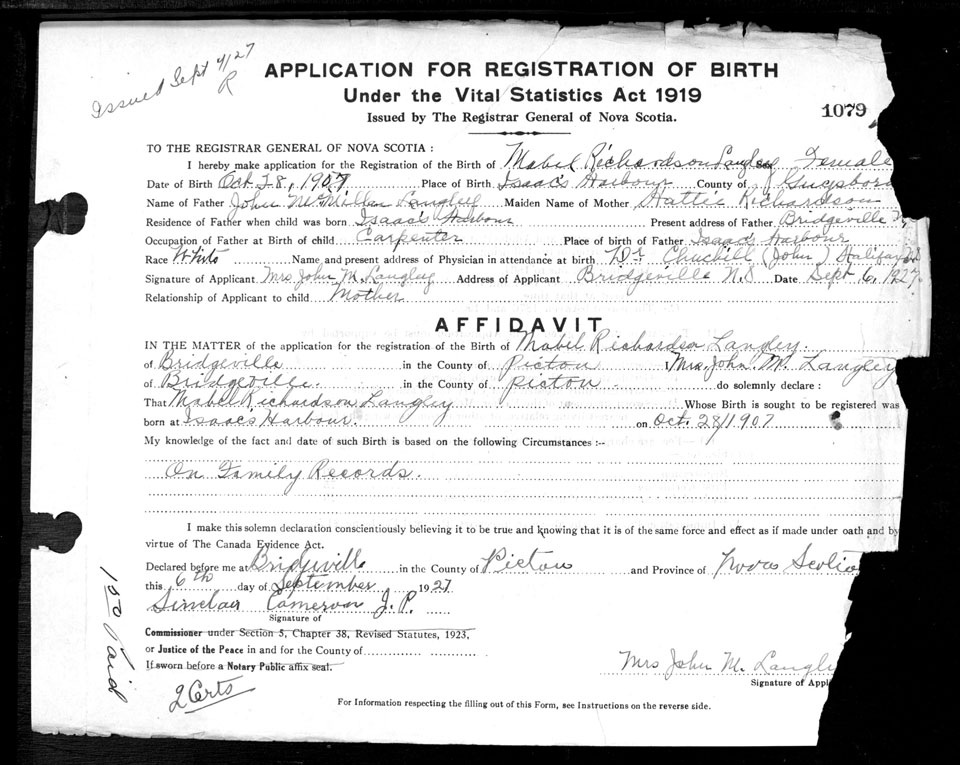 Issued Sept 9/27
R
APPLICATION FOR REGISTRATION OF BIRTH
Under the Vital Statistics Act 1919
1079
Issued by The Registrar General of Nova Scotia.
TO THE REGISTRAR GENERAL OF NOVA SCOTIA :
I hereby make application for the Registration of the Birth of Mabel Richardson Langley Sex Female
Date of Birth Oct 28, 1907 Place of Birth Isaac's Harbour County of Guysboro
Name of Father John McMillan Langley Maiden Name of Mother Hattie Richardson
Residence of Father when child was born Isaac's Harbour Present address of Father Bridgeville
Occupation of Father at Birth of child Carpenter Place of birth of Father Isaac's Harbour
Race White Name and present address of Physician in attendance at birth Dr Chuchill (John) Halifax
Signature of Applicant Mrs John M. Langley Address of Applicant Bridgeville N.S Date Sept 6, 1927.
Relationship of Applicant to child Mother
AFFIDAVIT
IN THE MATTER of the application for the registration of the Birth of Mabel Richardson Langley.
of Bridgeville in the County of Picton I Mrs. John. M. Langley
of Bridgeville. in the County of Picton do solemnly declare :
That Mabel Richardson Langley Whose Birth is sought to be registered was
born at Isaac's Harbour. on Oct. 28/1907
My knowledge of the fact and date of such Birth is based on the following Circumstances :--
On Family Records.
I make this solemn declaration conscientiously believing it to be true and knowing that it is of the same force and effect as if made under oath and by
virtue of The Canada Evidence Act.
Declared before me at Bridgeville in the County of Picton and Province of Nova Scotia
this 6th day of September 1927
Sinclair Cameron J.P.
Signature of
Commissioner under Section 5, Chapter 38, Revised Statutes, 1923,
or Justice of the Peace in and for the County of
If sworn before a Notary Public affix seal.
Mrs John M. Langley
Signature of Appli
2 Certs
For Information respecting the filling out of this Form, see Instructions on the reverse side.
150 Paid